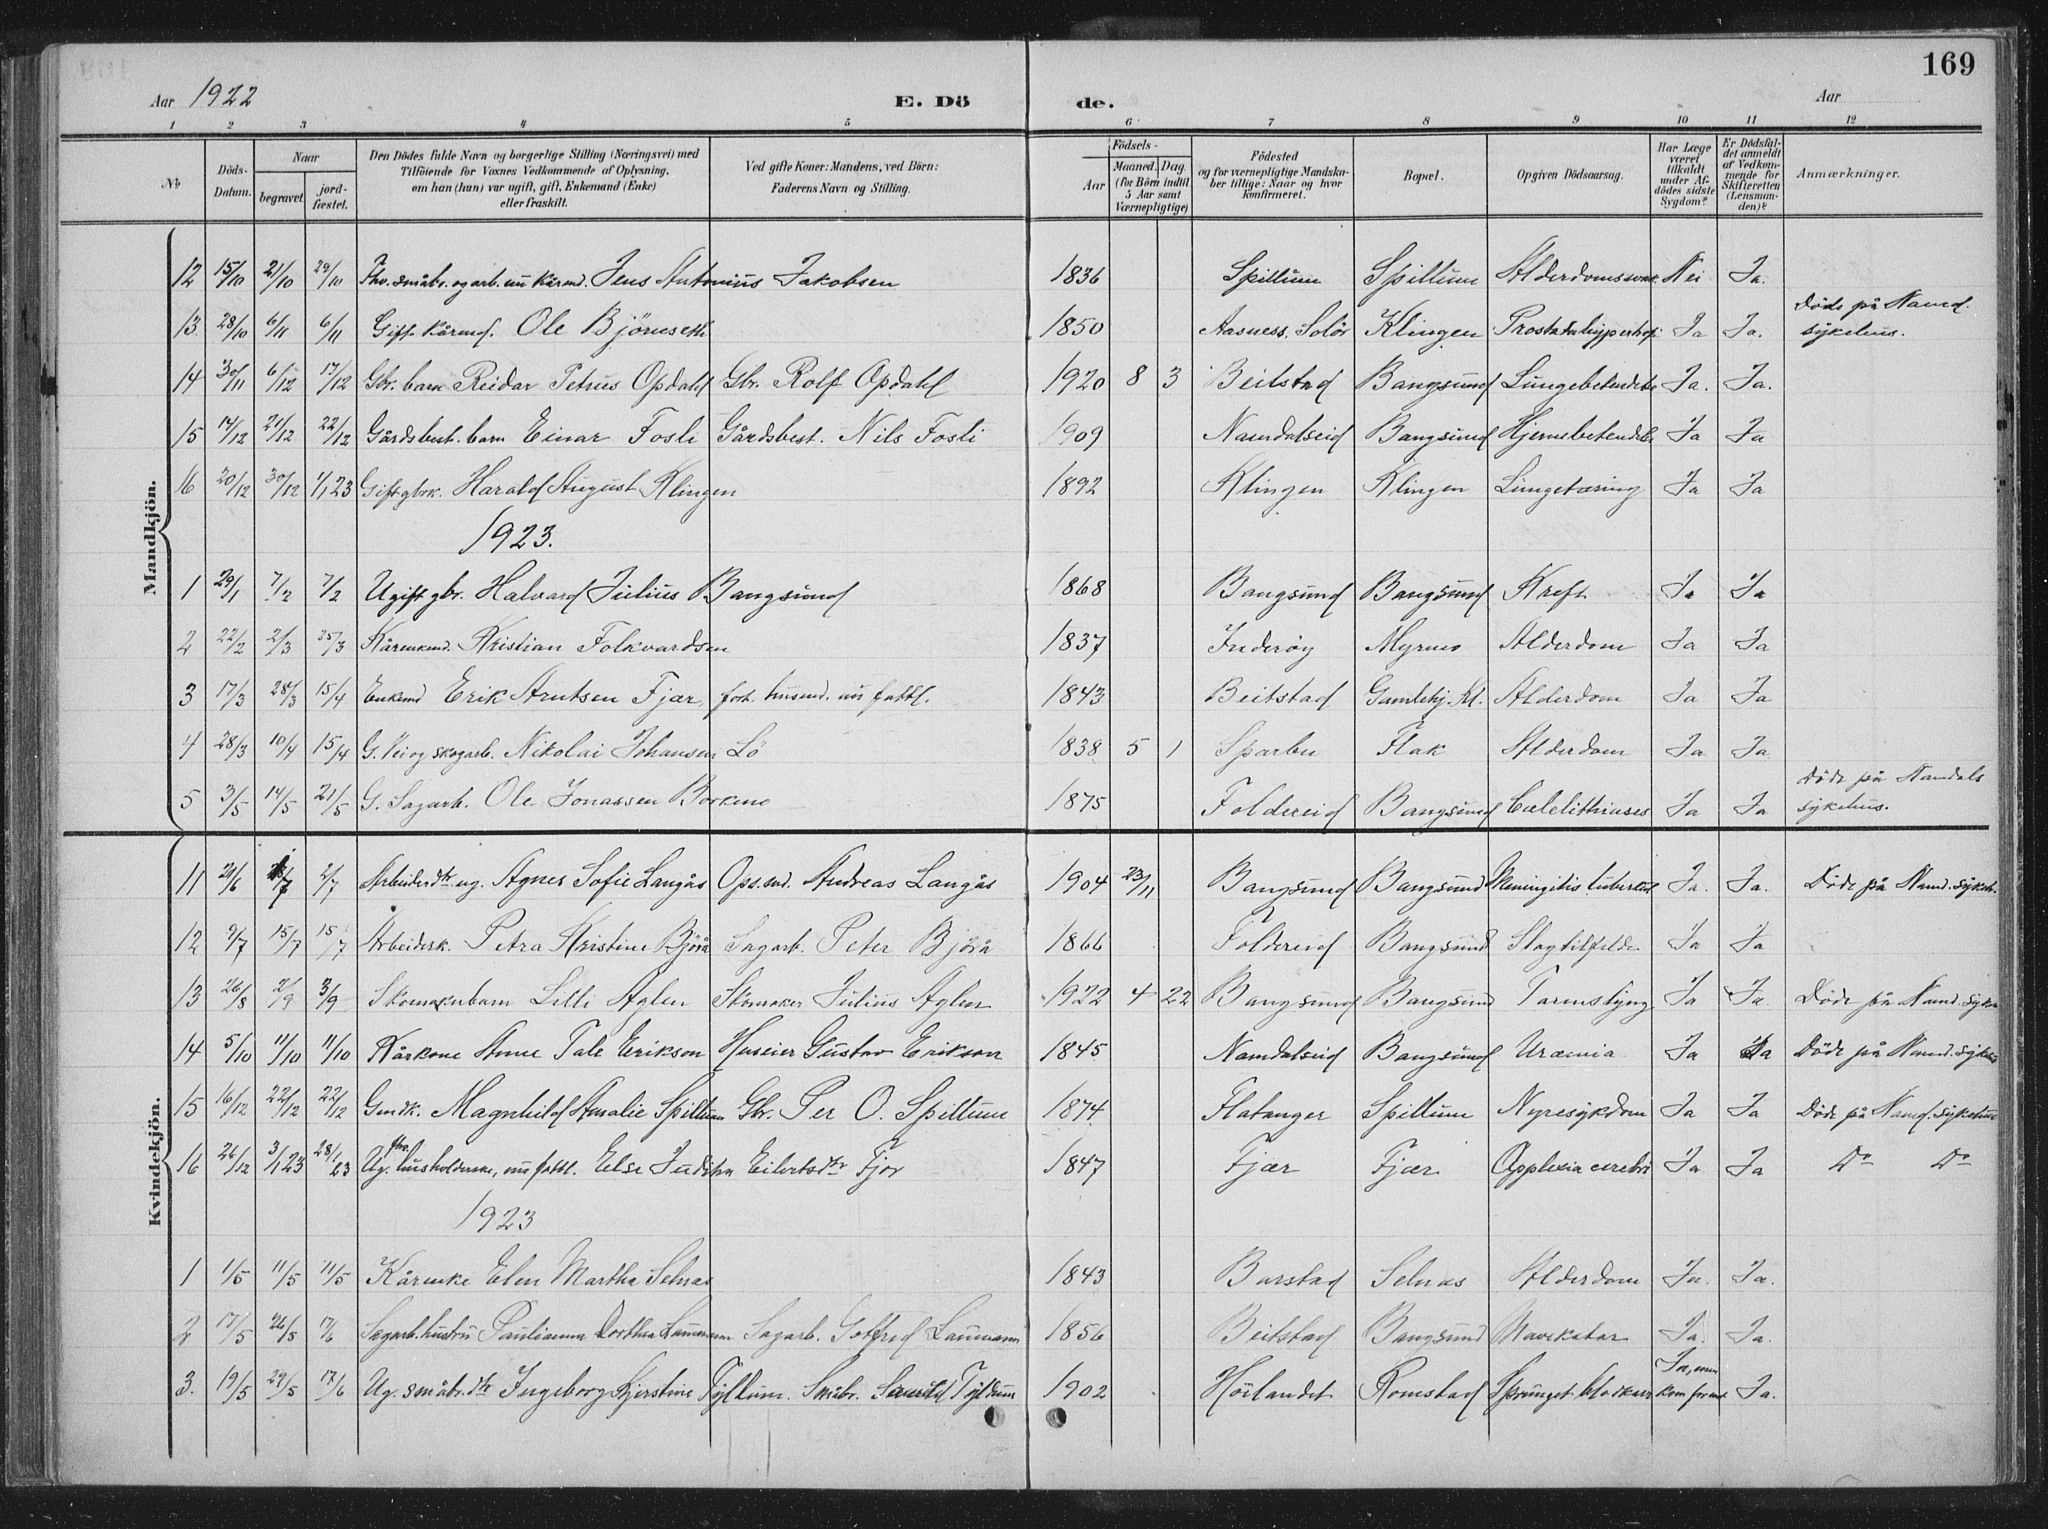 169
Aar 1922 E. Dö de. Aar
1 2 3 4 5 6 7 8 9 10 11 12
No Döds-Datum. Naar begravet. jord-fæstet. Den Dödes fulde Navn og borgerlige Stilling (Næringsvei) med Tilföiende for Voxnes Vedkommende af Oplysning, om han (hun) var ugift, gift, Enkemand (Enke) eller fraskilt. Ved gifte Koner: Mandens, ved Börn: Faderens Navn og Stilling. Födsels- Aar Maaned. Dag. (for Börn indtil 5 Aar samt Værnepligtige) Födested og for værnepligtige Mandskaber tillige: Naar og hvor konfirmeret. Bopæl. Opgiven Dödsaarsag. Har Læge været tilkaldt under Afdödes sidste Sygdom? Er Dödsfaldet anmeldt af Vedkommende for Skifteretten (Lensmanden)? Anmærkninger.
Mandkjön.
12 15/10 21/10 29/10 Fhv. småbr. og arb. nu kårmd. Jens Antonius Jakobsen 1836 Spillum Spillum Alderdomssvak. Nei Ja.
13 28/10 6/11 6/11 Gift kårmd. Ole Björnseth 1850 Aasness, Solör Klingen Prostatahypertrofi Ja Ja. Döde på Namd. sykehus.
14 30/11 6/12 17/12 Gbr. barn Reidar Petrus Opdahl Gbr. Rolf Opdahl 1920 8 3 Beitstad Bangsund Lungebetendelse Ja. Ja.
15 14/12 21/12 22/12 Gårdsbest. barn Einar Fosli Gårdsbest. Nils Fosli 1909 Namdalseid Bangsund Hjernebetendelse Ja Ja
16 20/12 30/12 1/1 23 Gift gbrk. Harald August Klingen 1892 Klingen Klingen Lungetæring Ja Ja
1923.
1 29/1 7/2 7/2 Ugift gbr. Halvard Julius Bangsund 1868 Bangsund Bangsund Kreft Ja Ja
2 22/2 2/3 25/3 Kårenkmd. Kristian Folkvardsen 1837 Inderöy Myrmo Alderdom Ja Ja
3 17/3 28/3 15/4 Enkemd Erik Arntsen Fjær forh. husmd. nu fattl. 1843 Beitstad Gamlehj. Kl. Alderdom Ja Ja
4 28/3 10/4 15/4 G. Vei og skogarb. Nikolai Johansen Lö 1838 5 1 Sparbu Flak Alderdom Ja Ja
5 3/5 14/5 21/5 G. Sagarb. Ole Jonassen Borkmo 1875 Foldereid Bangsund Colelithiases Ja Ja Döde på Namdals sykehus.
Kvindekjön.
11 21/6 2/7 Arbeiderdtr. ug. Agnes Sofie Langås Ops.md. Andreas Langås 1904 23/11 Bangsund Bangsund Meningitis tuberkul Ja. Ja. Döde på Namd. sykeh.
12 9/7 15/7 15/7 Arbeidersk. Petra Kristine Björå Sagarb. Peter Björå 1866 Foldereid Bangsund Slagtilfelde Ja Ja
13 26/8 2/9 3/9 Skomakerbarn Lilli Aglen Skomaker Julius Aglen 1922 4 22 Bangsund Bangsund Tarmslyng Ja Ja. Döde på Namd. sykeh
14 5/10 11/10 11/10 Kårkone Anne Tale Erikson Huseier Gustav Erikson 1845 Namdalseid Bangsund Uræmia Ja Ja Döde på Namd. sykeh
15 16/12 22/12 22/12 Gmdk. Magnhild Amalie Spillum Gbr. Per O. Spillum 1874 Flatanger Spillum Nyresykdom Ja Ja Döde på Namd. sykehus
16 26/12 3/1 23 28/1 23 Ug. fhv. husholderske, nu fattl. Else Judithe Eilertsdtr Fjær 1847 Fjær Fjær Applexia cerebri Ja Ja Do Do
1923
1 1/5 11/5 11/5 Kårenke Elen Martha Selnæs 1843 Barstad Selnæs Alderdom Ja. Ja.
2 17/5 26/5 17/6 Sagarb. hustru Paulianna Dorthea Laumann Sagarb. Gotfred Laumann 1856 Beitstad Bangsund Mavekatar Ja. Ja.
3. 19/5 29/5 17/6 Ug. småbr. dtr Ingeborg Kjerstine Tyldum. Småbr. Tyldum 1902 Höilandet Romstad Sprunget blodkar Ja, men kom for sent Ja.